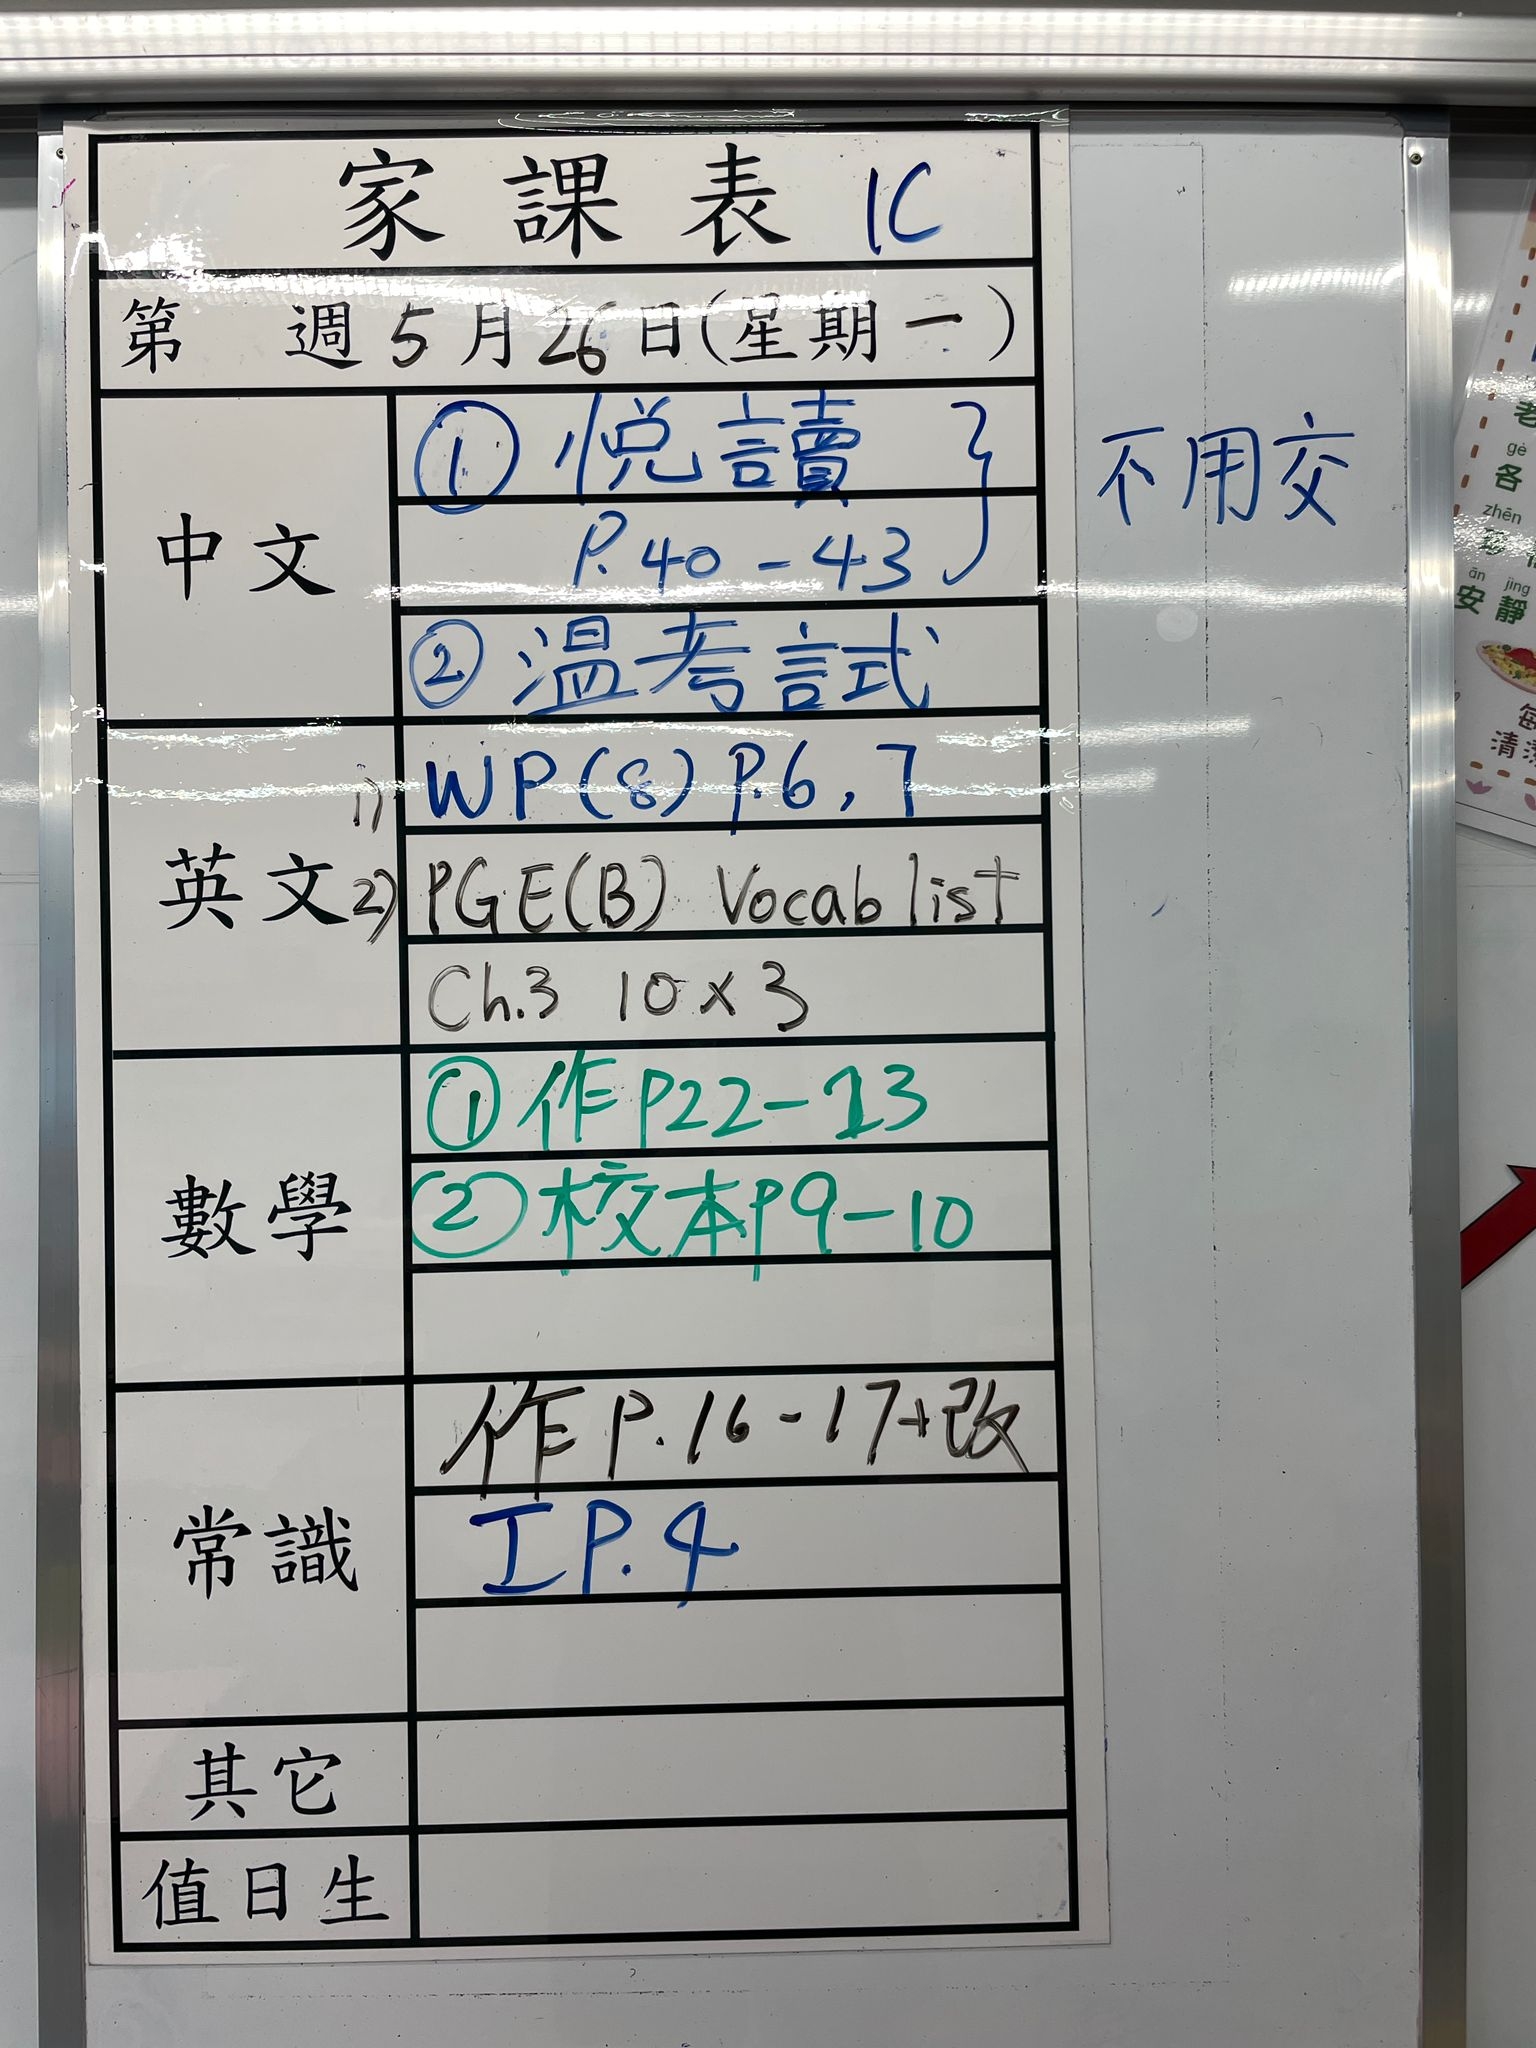 家課表 1C
第 週 5月26日(星期一)
中文
① 悅讀
P.40-43
不用交
② 溫考試
英文
1) WP(8) P.6, 7
2) PGE(B) Vocab list
Ch.3 10x3
數學
① 作P22-23
② 校本P9-10
常識
作P.16-17+改
工P.4
其它
值日生
老
gè
各
zhēn
ān jìng
安靜
清潔